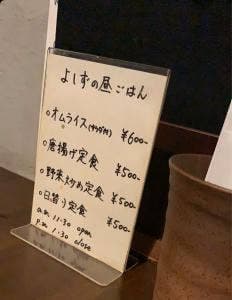 よしずの昼ごはん
○オムライス(サラダ付) ¥600-
○唐揚げ定食 ¥500-
○野菜炒め定食 ¥500-
○日替り定食 ¥500-
a.m. 11:30 open
p.m. 1:30 close